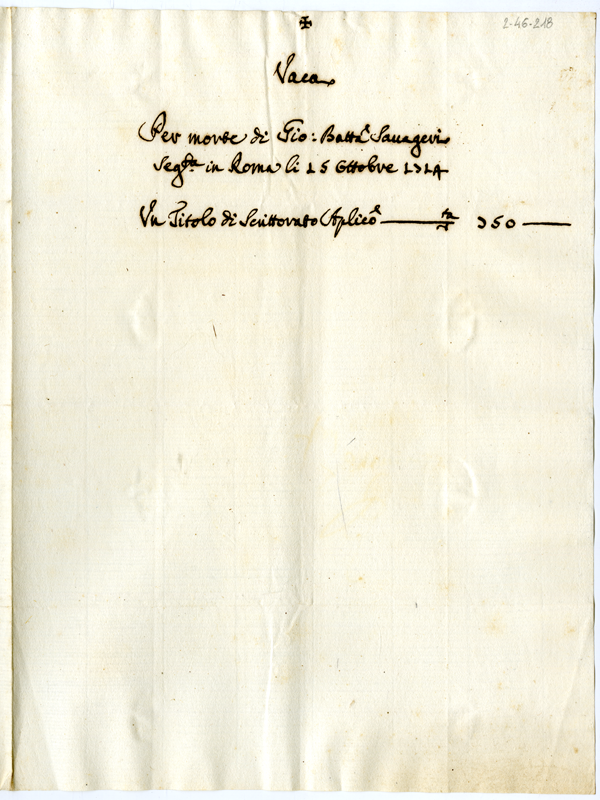 2-46-218
✠
Vaca
Per morte di Gio: Batta Sauageri
Seg.ta in Roma li 15 Ottobre 1714
Vn Titolo di Scrittorato Aplico 350